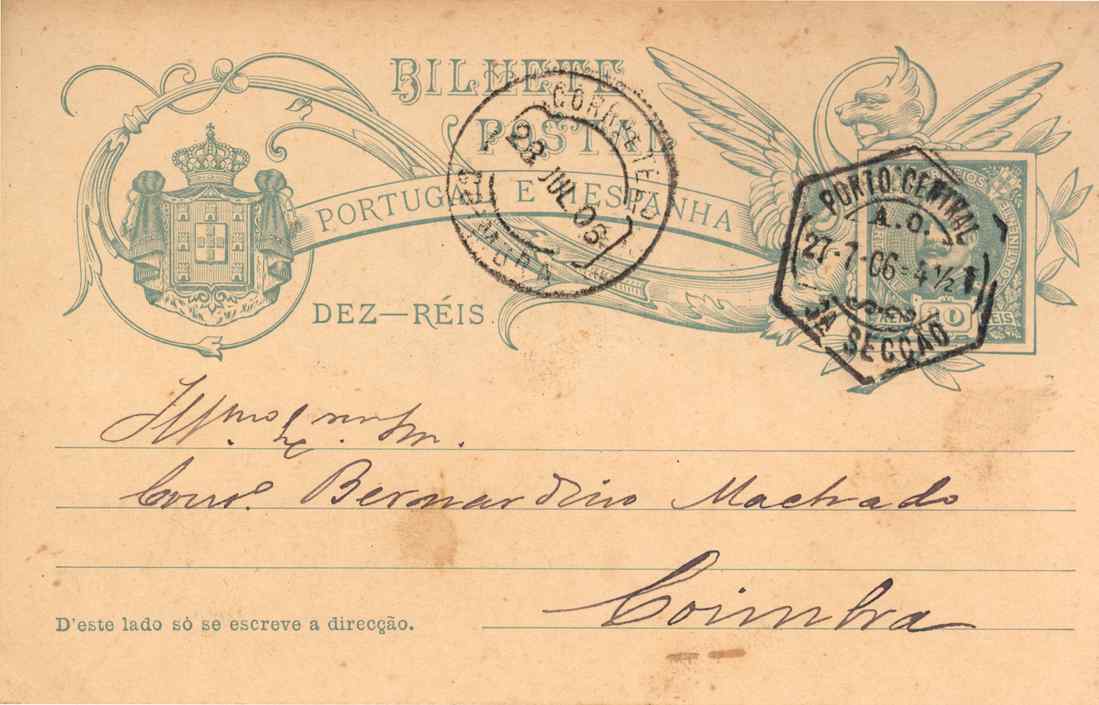 BILHETE
POSTAL
PORTUGAL E HESPANHA
DEZ—RÉIS
CORREIO E TELEG
28 JUL. 06
COIMBRA
PORTO CENTRAL
27-7-06-4½T
3A SECÇÃO
REIS
Illmo e Exmo Snr.
Conso. Bernardino Machado
Coimbra
D'este lado só se escreve a direcção.